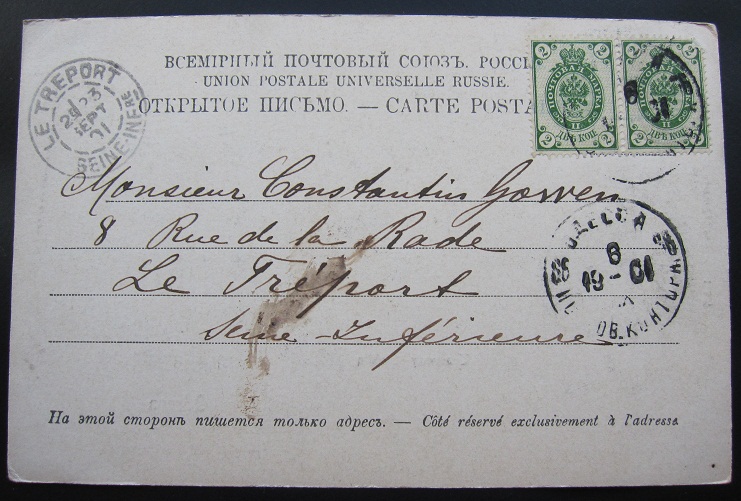 ВСЕМІРНЫЙ ПОЧТОВЫЙ СОЮЗЪ. РОССІ
UNION POSTALE UNIVERSELLE RUSSIE.
ОТКРЫТОЕ ПИСЬМО. — CARTE POSTA
2 2
ПОЧТОВАЯ МАРКА
2 ДВѢ КОП.
2 2
ПОЧТОВАЯ МАРКА
ДВѢ КОП. 2
LE TRÉPORT
23
SEPT
01
SEINE-INFRE
Monsieur Constantin
8 Rue de la Rade
Le Tréport
Seine-Inférieure
ОДЕССА
8
19-01
На этой сторонѣ пишется только адресъ. — Côté réservé exclusivement à l'adresse